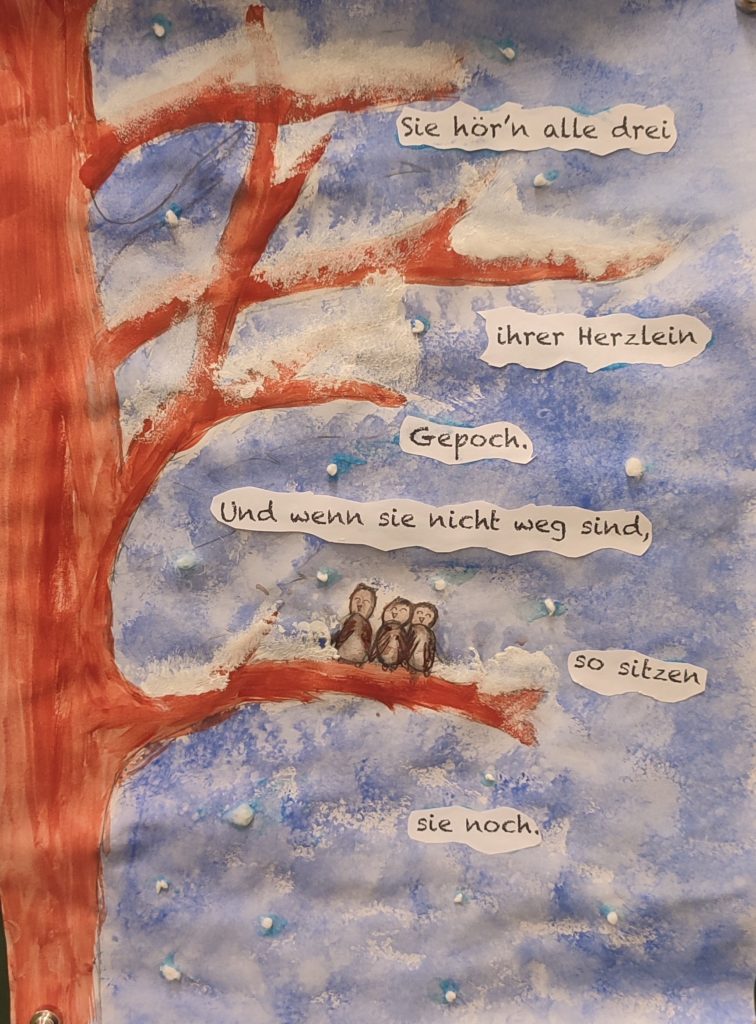 Sie hör'n alle drei
ihrer Herzlein
Gepoch.
Und wenn sie nicht weg sind,
so sitzen
sie noch.